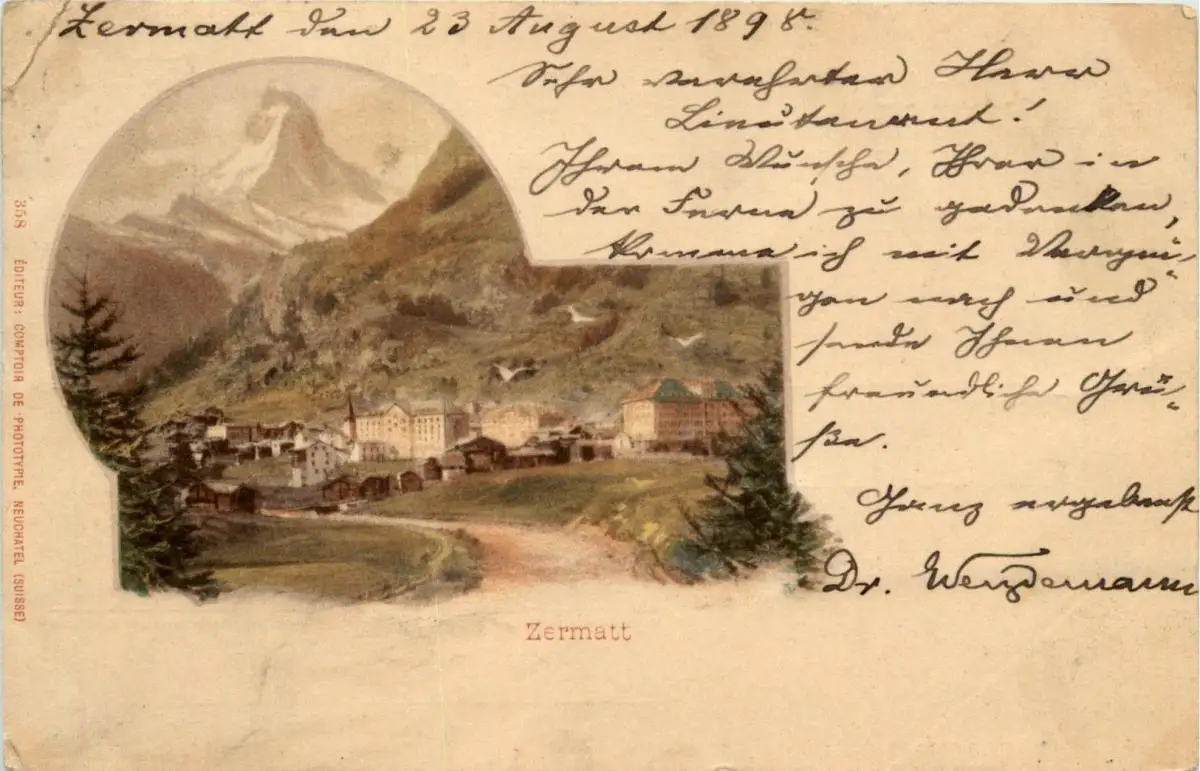 Zermatt den 23 August 1898.
Sehr verehrter Herr
Lieutenant!
Ihrem Wunsche, Ihrer in
der Ferne zu gedenken,
komme ich mit Vergnü-
gen nach und
sende Ihnen
freundliche Grü-
ße.
Ganz ergebenst
Dr.
Zermatt
358 ÉDITEUR: COMPTOIR DE PHOTOTYPIE, NEUCHATEL (SUISSE)